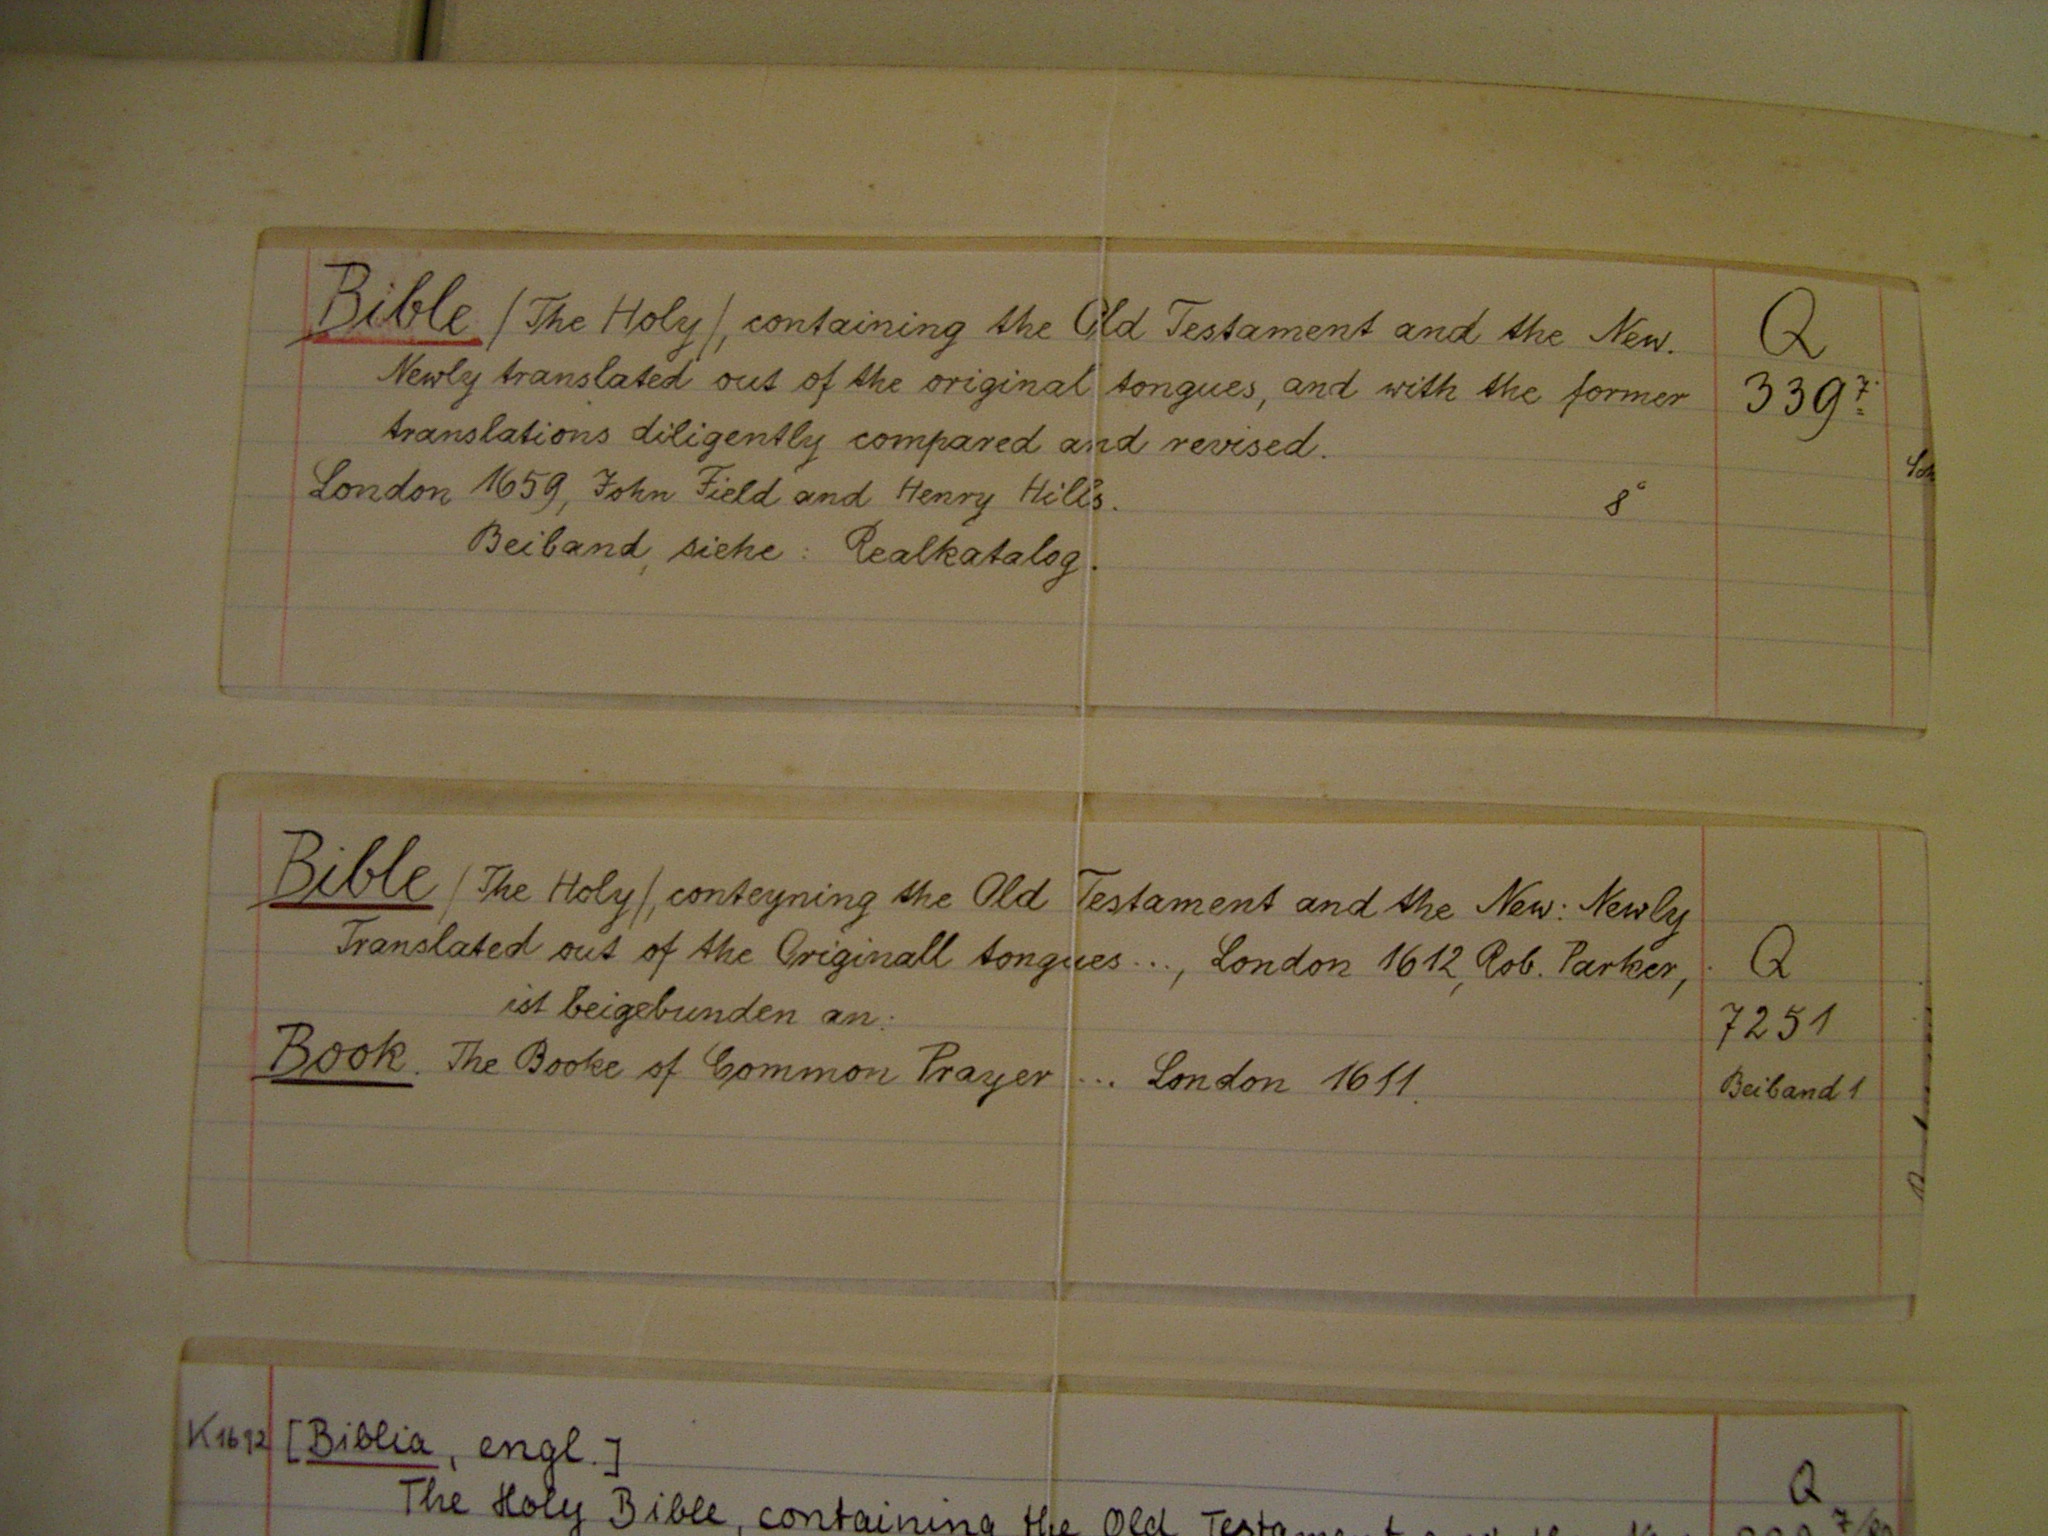 Bible (The Holy), containing the Old Testament and the New.
Newly translated out of the original tongues, and with the former
translations diligently compared and revised.
London 1659, John Field and Henry Hills.
8°
Beiband, siehe: Realkatalog.
Q
339 7.
Bible (The Holy), conteyning the Old Testament and the New: Newly
Translated out of the Originall tongues ..., London 1612, Rob. Parker,
ist beigebunden an:
Book. The Booke of Common Prayer ... London 1611.
Q
7251
Beiband 1
K1692
[Biblia, engl.]
The Holy Bible, containing the Old
Q